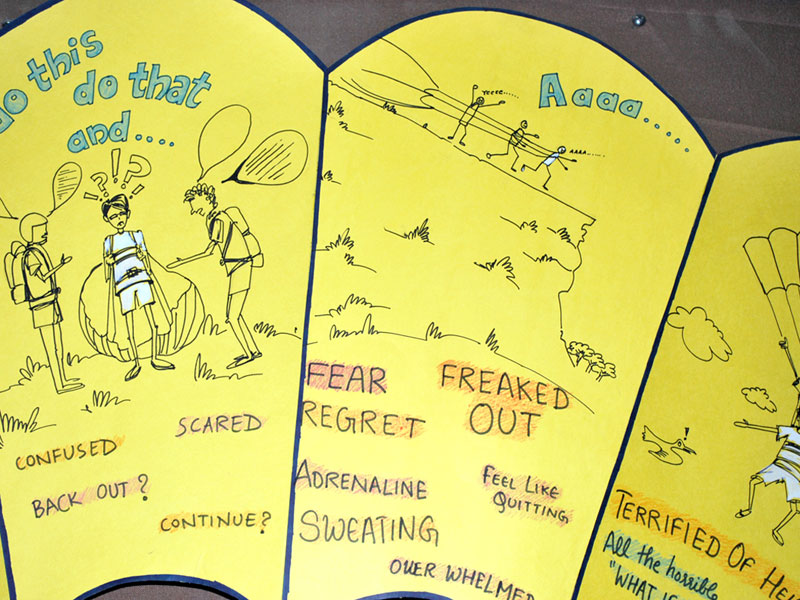 do this
do that
and....
?!?
CONFUSED
SCARED
BACK OUT?
CONTINUE?
Aaaa.....
Yeeee......
AAAA......
FEAR
FREAKED
OUT
REGRET
ADRENALINE
FEEL LIKE
QUITTING
SWEATING
OVER WHELMED
!
TERRIFIED OF
All the horrible
"WHAT